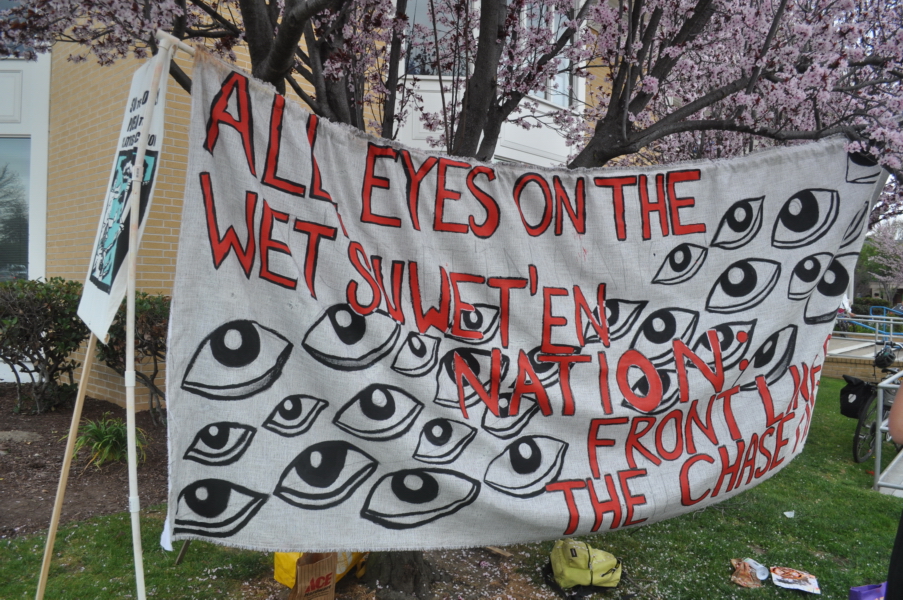 ALL EYES ON THE
WET'SUWET'EN
NATION:
FRONTLINE
THE CHASE
ACE